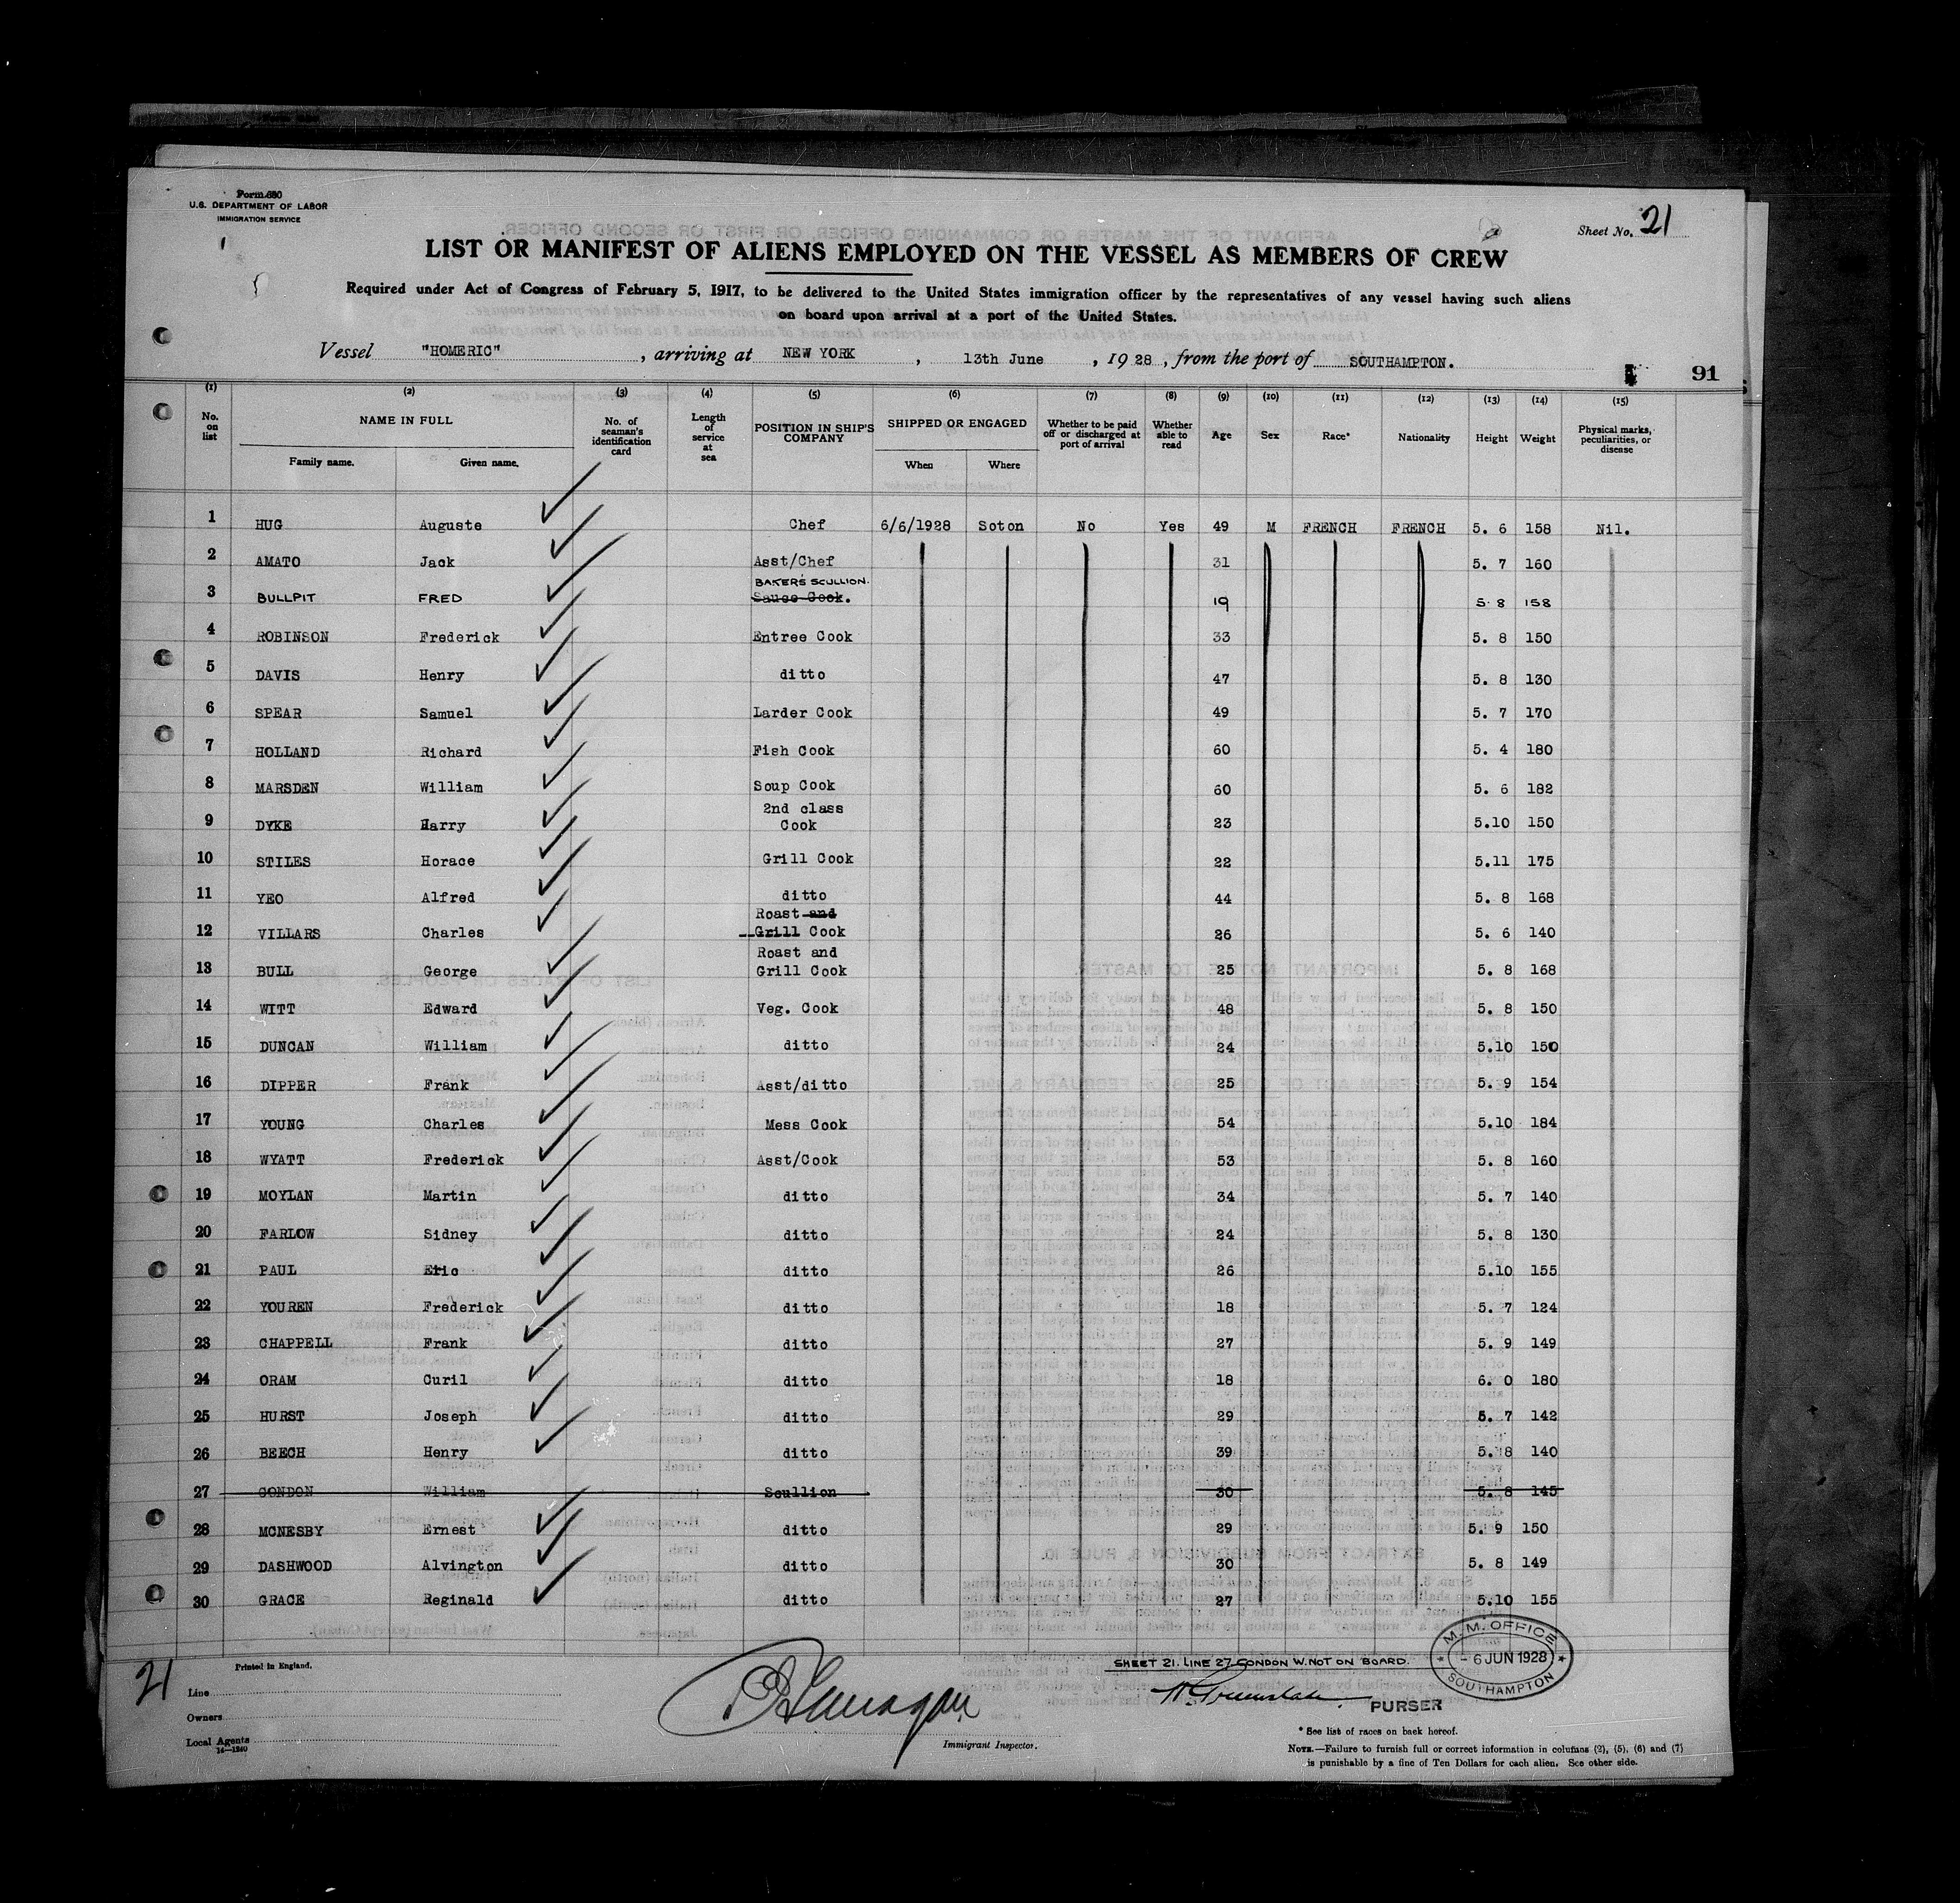 Form 680
U.S. DEPARTMENT OF LABOR
IMMIGRATION SERVICE
Sheet No. 21
LIST OR MANIFEST OF ALIENS EMPLOYED ON THE VESSEL AS MEMBERS OF CREW
Required under Act of Congress of February 5, 1917, to be delivered to the United States immigration officer by the representatives of any vessel having such aliens
on board upon arrival at a port of the United States.
Vessel "HOMERIC", arriving at NEW YORK, 13th June, 1928, from the port of SOUTHAMPTON.
91
(1) (2) (3) (4) (5) (6) (7) (8) (9) (10) (11) (12) (13) (14) (15)
No. on list NAME IN FULL Family name. Given name. No. of seaman's identification card Length of service at sea POSITION IN SHIP'S COMPANY SHIPPED OR ENGAGED When Where Whether to be paid off or discharged at port of arrival Whether able to read Age Sex Race* Nationality Height Weight Physical marks, peculiarities, or disease
1 HUG Auguste Chef 6/6/1928 Soton No Yes 49 M FRENCH FRENCH 5. 6 158 Nil.
2 AMATO Jack Asst/Chef 31 5. 7 160
3 BULLPIT FRED BAKERS SCULLION. Sauce Cook. 19 5 8 158
4 ROBINSON Frederick Entree Cook 33 5. 8 150
5 DAVIS Henry ditto 47 5. 8 130
6 SPEAR Samuel Larder Cook 49 5. 7 170
7 HOLLAND Richard Fish Cook 60 5. 4 180
8 MARSDEN William Soup Cook 60 5. 6 182
9 DYKE Harry 2nd class Cook 23 5.10 150
10 STILES Horace Grill Cook 22 5.11 175
11 YEO Alfred ditto 44 5. 8 168
12 VILLARS Charles Roast and Grill Cook 26 5. 6 140
13 BULL George Roast and Grill Cook 25 5. 8 168
14 WITT Edward Veg. Cook 48 5. 8 150
15 DUNCAN William ditto 24 5.10 150
16 DIPPER Frank Asst/ditto 25 5. 9 154
17 YOUNG Charles Mess Cook 54 5.10 184
18 WYATT Frederick Asst/Cook 53 5. 8 160
19 MOYLAN Martin ditto 34 5. 7 140
20 FARLOW Sidney ditto 24 5. 8 130
21 PAUL Eric ditto 26 5.10 155
22 YOUREN Frederick ditto 18 5. 7 124
23 CHAPPELL Frank ditto 27 5. 9 149
24 ORAM Curil ditto 18 6. 0 180
25 HURST Joseph ditto 29 5. 7 142
26 BEECH Henry ditto 39 5. 8 140
27 CONDON William Scullion 30 5. 8 145
28 MCNESBY Ernest ditto 29 5. 9 150
29 DASHWOOD Alvington ditto 30 5. 8 149
30 GRACE Reginald ditto 27 5.10 155
SHEET 21. LINE 27 CONDON W. NOT ON BOARD.
M. M. OFFICE
- 6 JUN 1928
SOUTHAMPTON
PURSER
21
Printed in England.
Line
Owners
Local Agents
14—1240
Immigrant Inspector.
* See list of races on back hereof.
NOTE.—Failure to furnish full or correct information in columns (2), (5), (6) and (7)
is punishable by a fine of Ten Dollars for each alien. See other side.